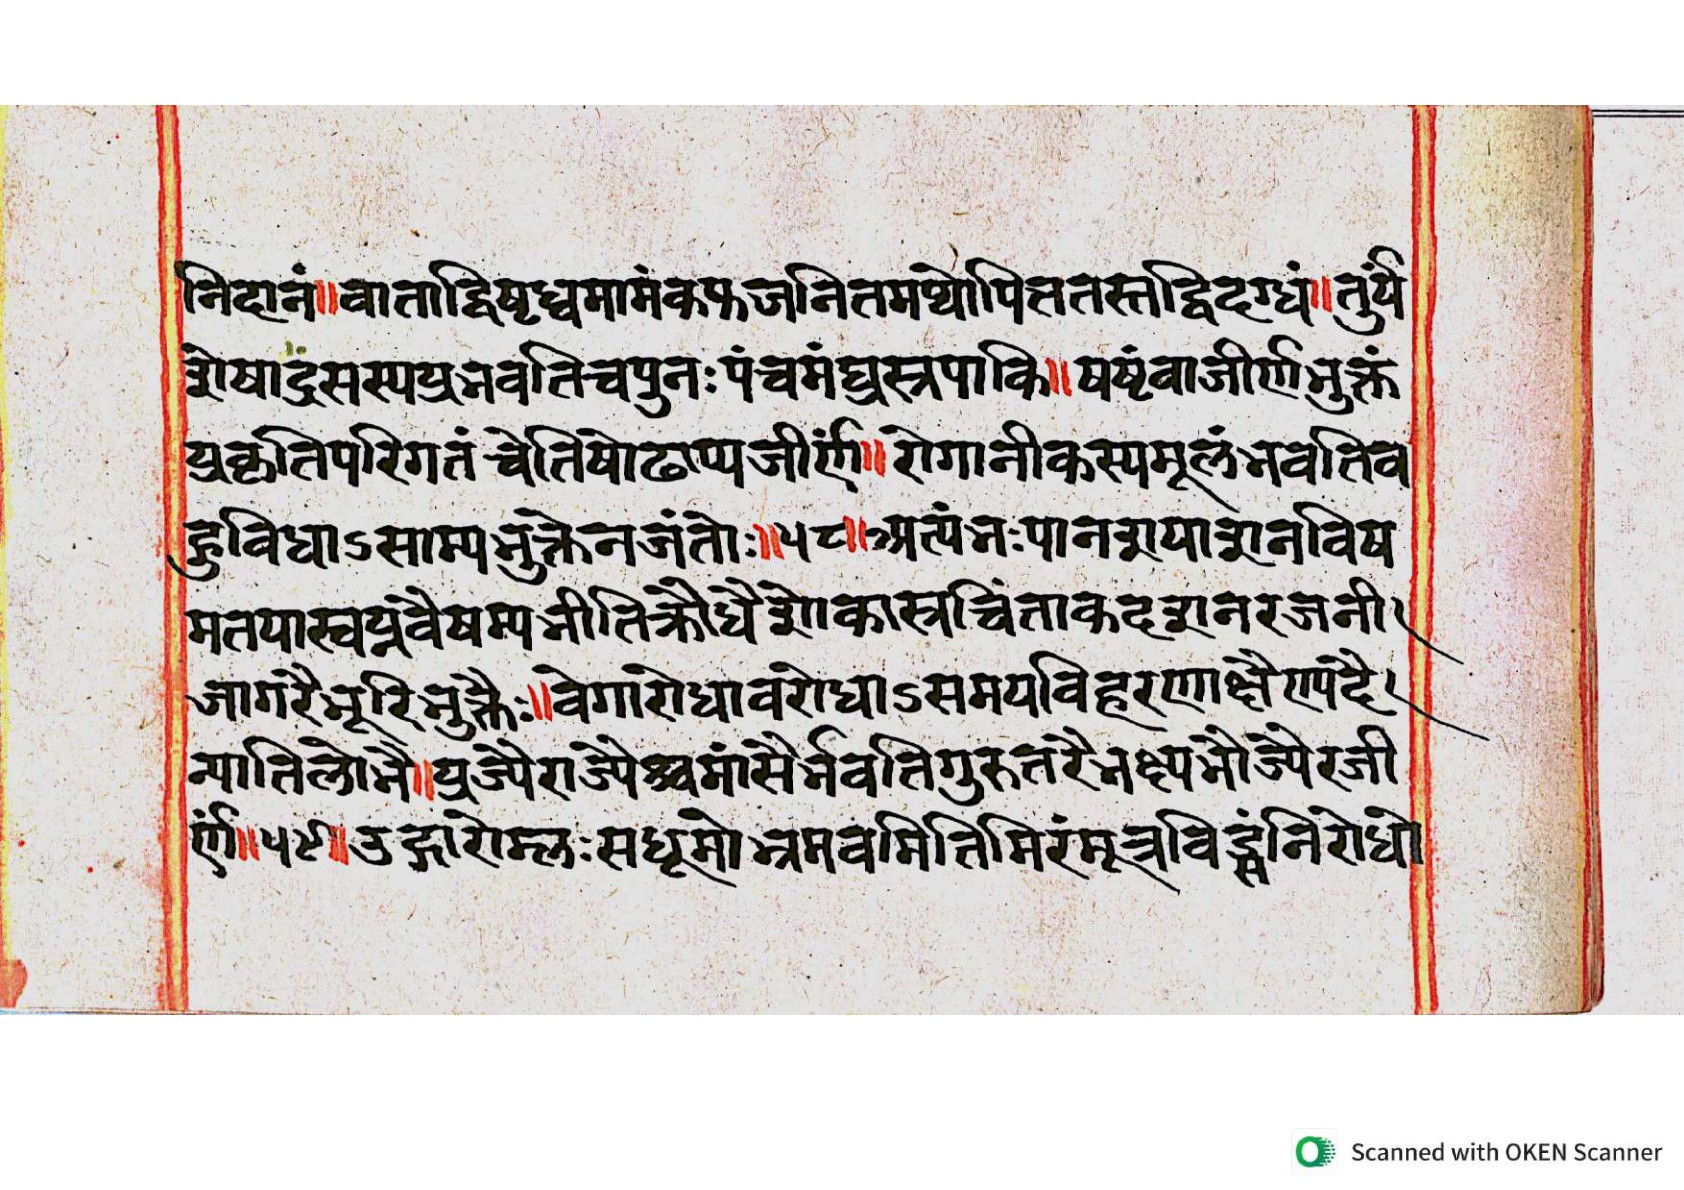 निदानं॥वाताद्विषृघ्वमामंकफजनितमथोपित्ततस्तद्विदग्धं॥तुर्यं
शेषाद्रसस्यप्रभवतिचपुनःपंचमंघस्त्रपाकि॥षष्टंवाजीर्णभुक्तं
प्रकृतिपरिगतंचेतिषोढाप्यजीर्णं॥रोगानीकस्यमूलंभवतिव
हुविधाऽसाम्यभुक्तेनजंतोः॥५८॥अत्यंभःपानशयाशनविष
मतयास्वप्नवैषम्यभीतिक्रोधैशोकास्त्रचिंताकदशनरजनी
जागरैभूरिभुक्तैः॥वेगारोधावरोधाऽसमयविहरणाक्षैण्यदै
न्यातिलोभै॥प्रज्यैराज्यैश्चमांसैर्भवतिगुरुतरैभक्ष्यभोज्यैरजी
र्णं॥५९॥उद्गारोम्लःसधूमोभ्रमवमितिमिरंमूत्रविड्संनिरोधो
Scanned with OKEN Scanner